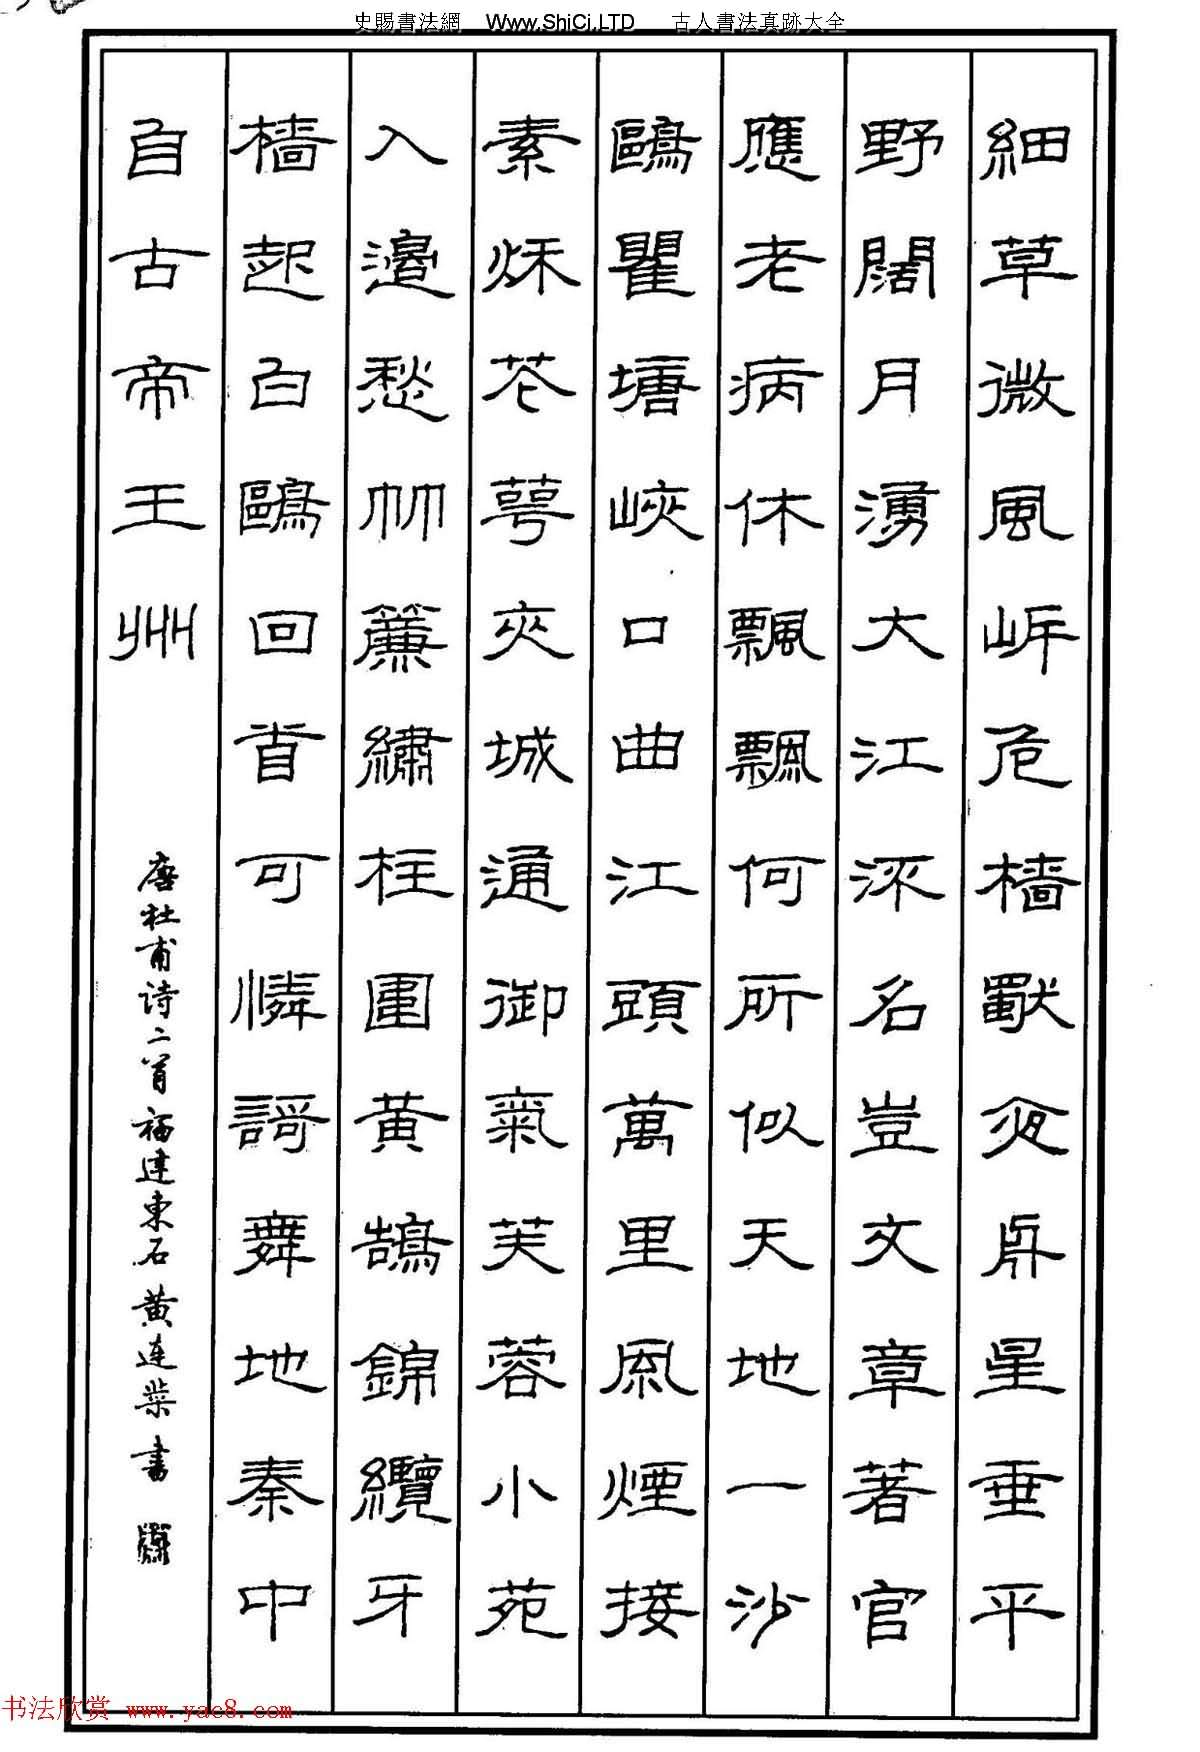 史賜書法網 Www.ShiCi.LTD 古人書法真跡大全
細草微風岸危檣獨夜舟星垂平
野闊月湧大江流名豈文章著官
應老病休飄飄何所似天地一沙
鷗瞿塘峽口曲江頭萬里風煙接
素秋花萼夾城通御氣芙蓉小苑
入邊愁珠簾繡柱圍黃鵠錦纜牙
檣起白鷗回首可憐謌舞地秦中
自古帝王州
唐杜甫诗二首福建東石黄连荣書
书法欣赏 www.yac8.com